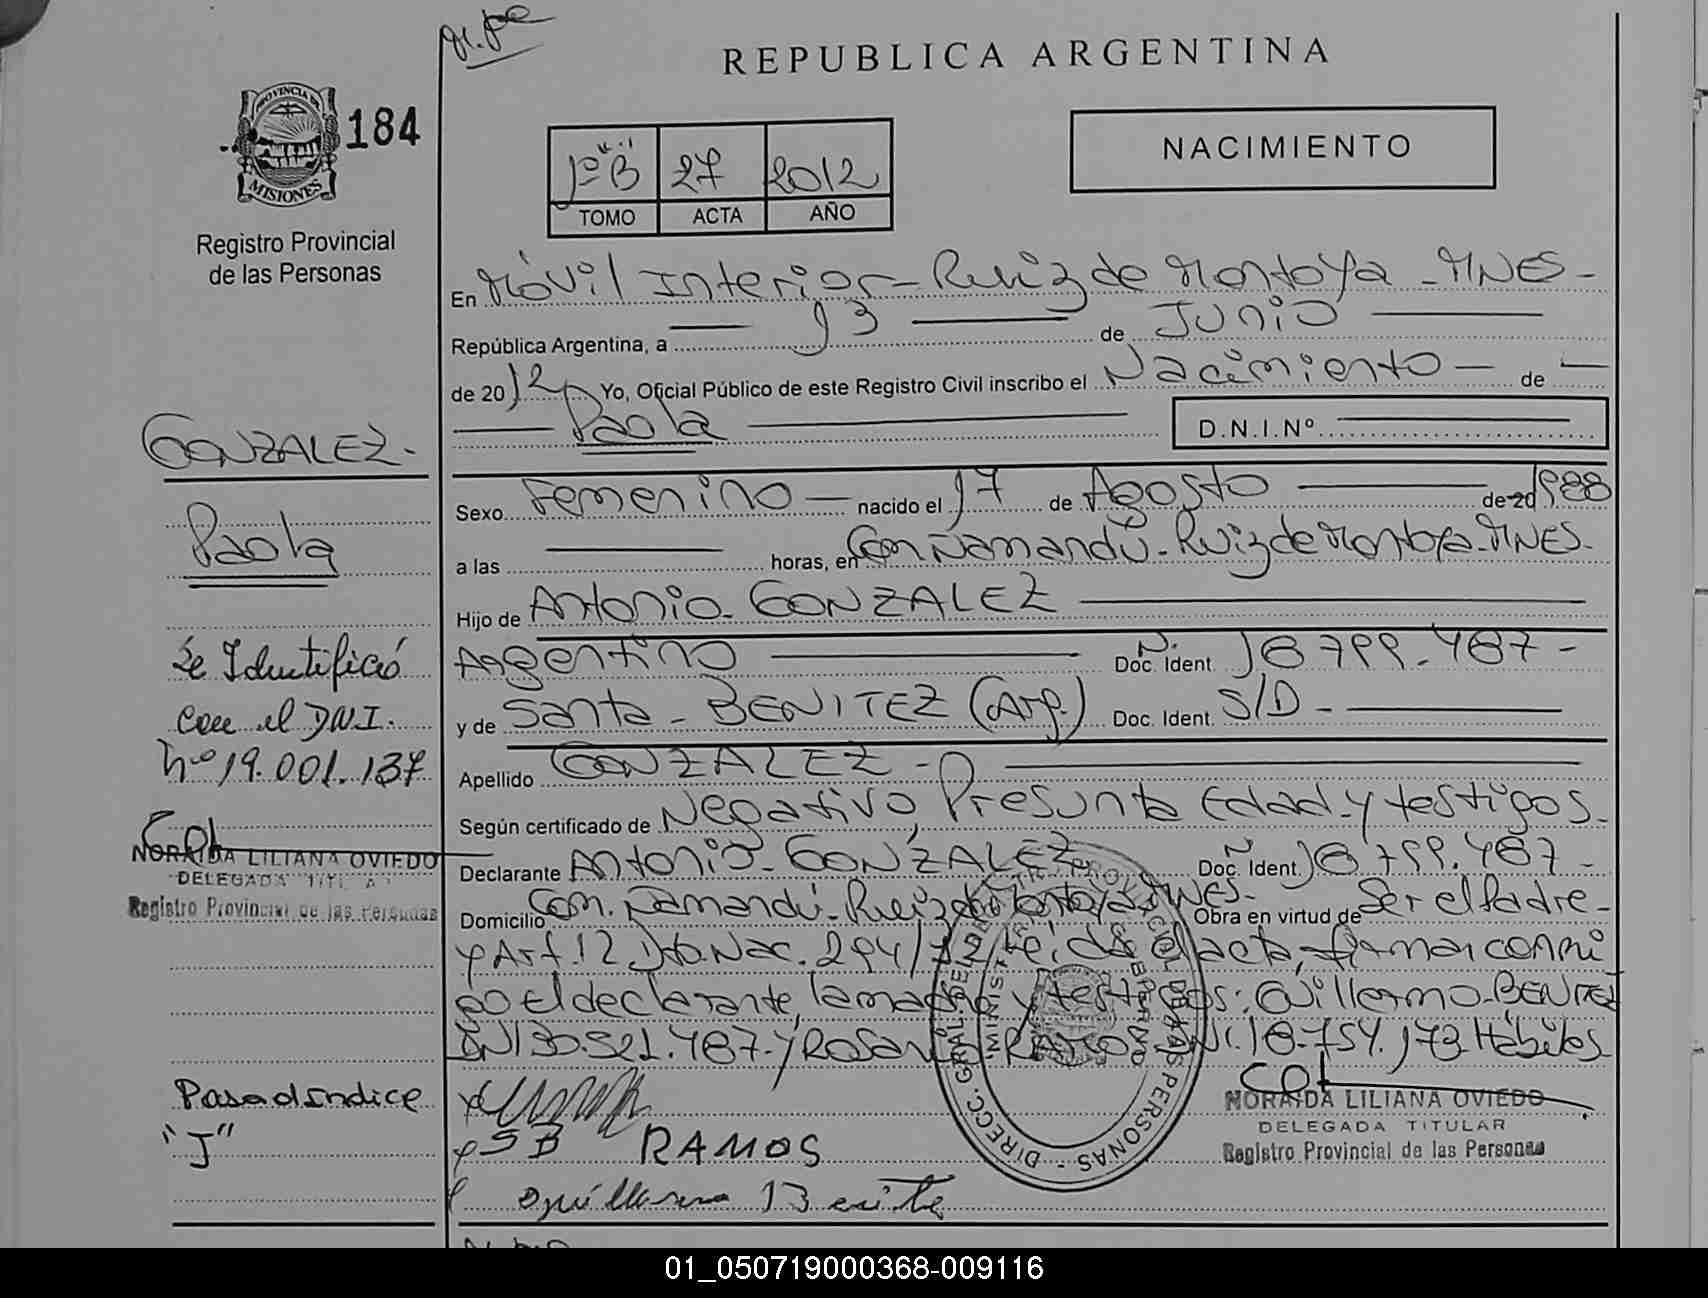 REPUBLICA ARGENTINA
PROVINCIA DE
MISIONES
184
Registro Provincial
de las Personas
1º B 27 2012
TOMO ACTA AÑO
NACIMIENTO
En Móvil Interior - Ruiz de Montoya - MNES -
República Argentina, a 13 de Junio
de 2012 Yo, Oficial Público de este Registro Civil inscribo el Nacimiento de
Paola
D.N.I.Nº
GONZALEZ -
Paola
Sexo Femenino nacido el 17 de Agosto de 20 1988
a las horas, en Com Ñamandú - Ruiz de Montoya - MNES -
Hijo de Antonio - GONZALEZ
Argentino Doc. Ident. N. 18799.487 -
y de Santa - BENITEZ (Arg.) Doc. Ident. S/D -
Apellido GONZALEZ -
Según certificado de Negativo, Presunta Edad y testigos -
Declarante Antonio - GONZALEZ Doc. Ident. N 18799.487 -
Domicilio Com. Ñamandú - Ruiz de Montoya MNES - Obra en virtud de Ser el Padre -
y Art. 12 Dto. Nac. 294/72 Leída el acta, firman conmi
go El declarante, la madre y testigos: Guillermo - BENITEZ
DNI 30.521.487 - y Rosa RAMOS DNI. 18.754.173 Hábiles
RAMOS
SB
Guillermo Benite
Se Identificó
con el D.N.I.
nº 19.001.137
NORAIDA LILIANA OVIEDO
DELEGADA TITULAR
Registro Provincial de las Personas
Pasad Indice
"J"
NORAIDA LILIANA OVIEDO
DELEGADA TITULAR
Registro Provincial de las Personas
DIRECC. GRAL. DEL REGISTRO PROVINCIAL DE LAS PERSONAS
01_050719000368-009116